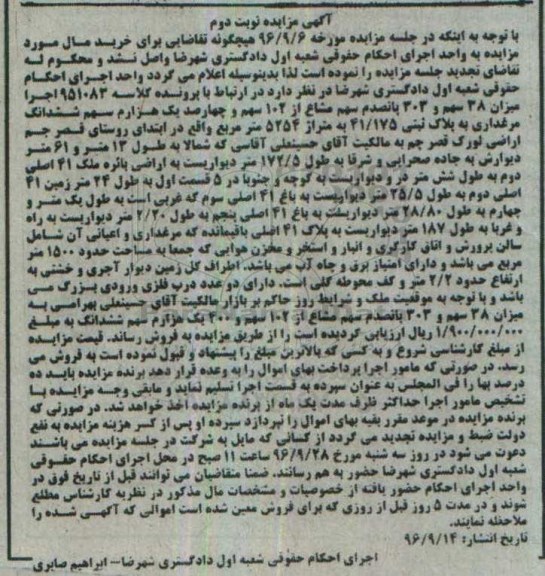 آگهی مزایده نوبت دوم
با توجه به اینکه در جلسه مزایده مورخه ۹۶/۹/۶ هیچگونه تقاضایی برای خرید مال مورد
مزایده به واحد اجرای احکام حقوقی شعبه اول دادگستری شهرضا واصل نشد و محکوم له
تقاضای تجدید جلسه مزایده را نموده است لذا بدینوسیله اعلام می گردد واحد اجرای احکام
حقوقی شعبه اول دادگستری شهرضا در نظر دارد در ارتباط با پرونده کلاسه ۹۵۱۰۸۳ اجرا
میزان ۳۸ سهم و ۳۰۳ پانصدم سهم مشاع از ۱۰۲ سهم و چهارصد یک هزارم سهم ششدانگ
مرغداری به پلاک ثبتی ۴۱/۱۷۵ به متراژ ۵۲۵۴ متر مربع واقع در ابتدای روستای قصر چم
اراضی لورک قصر چم به مالکیت آقای حسینعلی آقاسی که شمالا به طول ۱۳ متر و ۶۱ متر
دیوارش به جاده صحرایی و شرقا به طول ۱۷۲/۵ متر دیواریست به اراضی پائره ملک ۴۱ اصلی
دوم به طول شش متر در و دیواریست به کوچه و جنوبا در ۵ قسمت اول به طول ۲۴ متر زمین ۴۱
اصلی دوم به طول ۲۵/۵ متر دیواریست به باغ ۴۱ اصلی سوم که غربی است به طول یک متر و
چهارم به طول ۲۸/۸۰ متر دیواریست به باغ ۴۱ اصلی پنجم به طول ۲/۲۰ متر دیواریست به راه
و غربا به طول ۱۸۷ متر دیواریست به پلاک ۴۱ اصلی باقیمانده که مرغداری و اعیانی آن شامل
سالن پرورش و اتاق کارگری و انبار و استخر و مخزن هوایی که جمعا به مساحت حدود ۱۵۰۰ متر
مربع می باشد و دارای امتیاز برق و چاه آب می باشد. اطراف کل زمین دیوار آجری و خشتی به
ارتفاع حدود ۲/۲ متر و کف محوطه کلی است. دارای دو عدد درب فلزی ورودی بزرگ می
باشد و با توجه به موقعیت ملک و شرایط روز حاکم بر بازار مالکیت آقای حسینعلی بهرامی به
میزان ۳۸ سهم و ۳۰۳ پانصدم سهم مشاع از ۱۰۲ سهم و ۴۰۰ یک هزارم سهم ششدانگ به مبلغ
۱/۹۰۰/۰۰۰/۰۰۰ ریال ارزیابی گردیده است را از طریق مزایده به فروش رساند. قیمت مزایده
از مبلغ کارشناسی شروع و به کسی که بالاترین مبلغ را پیشنهاد و قبول نموده است به فروش می
رسد. در صورتی که مامور اجرا پرداخت بهای اموال را به وعده قرار دهد برنده مزایده باید ده
درصد بها را فی المجلس به عنوان سپرده به قسمت اجرا تسلیم نماید و مابقی وجه مزایده با
تشخیص مامور اجرا حداکثر ظرف مدت یک ماه از برنده مزایده اخذ خواهد شد. در صورتی که
برنده مزایده در موعد مقرر بقیه بهای اموال را نپردازد سپرده او پس از کسر هزینه مزایده به نفع
دولت ضبط و مزایده تجدید می گردد از کسانی که مایل به شرکت در جلسه مزایده می باشند
دعوت می شود در روز سه شنبه مورخ ۹۶/۹/۲۸ ساعت ۱۱ صبح در محل اجرای احکام حقوقی
شعبه اول دادگستری شهرضا حضور به هم رسانند. ضمنا متقاضیان می توانند قبل از تاریخ فوق در
واحد اجرای احکام حضور یافته از خصوصیات و مشخصات مال مذکور در نظریه کارشناس مطلع
شوند و در مدت ۵ روز قبل از روزی که برای فروش معین شده است اموالی که آگهی شده را
ملاحظه نمایند.
تاریخ انتشار: ۹۶/۹/۱۴
اجرای احکام حقوقی شعبه اول دادگستری شهرضا- ابراهیم صابری